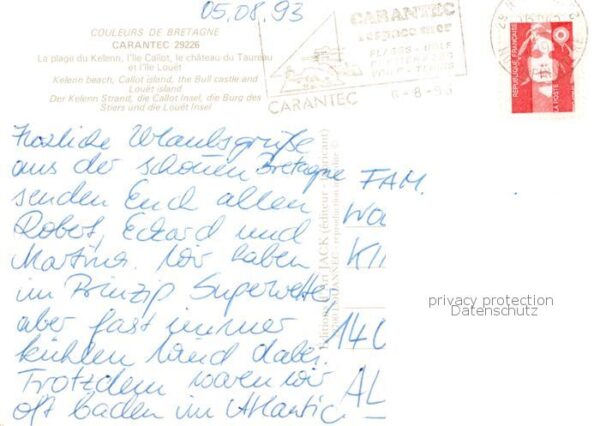 05.08.93
COULEURS DE BRETAGNE
CARANTEC 29226
La plage du Kelenn, l'île Callot, le château du Taureau
et l'île Louët
Kelenn beach, Callot island, the Bull castle and
Louët island
Der Kelenn Strand, die Callot Insel, die Burg des
Stiers und die Louët Insel
CARANTEC
l'espace mer
PLAGES - GOLF
CARANTEC
6-8-93
RÉPUBLIQUE FRANÇAISE
LA POSTE
Herzliche Urlaubsgrüße
aus der schönen Bretagne
senden Euch allen
Robert, Eckard und
Martina. Wir haben
im Prinzip Superwetter,
aber fast immer
kühlen Wind dabei.
Trotzdem waren wir
oft baden im Atlantic
JACK (éditeur - fabricant)
FAM.
Wa
Kli
140
AL
privacy protection
Datenschutz